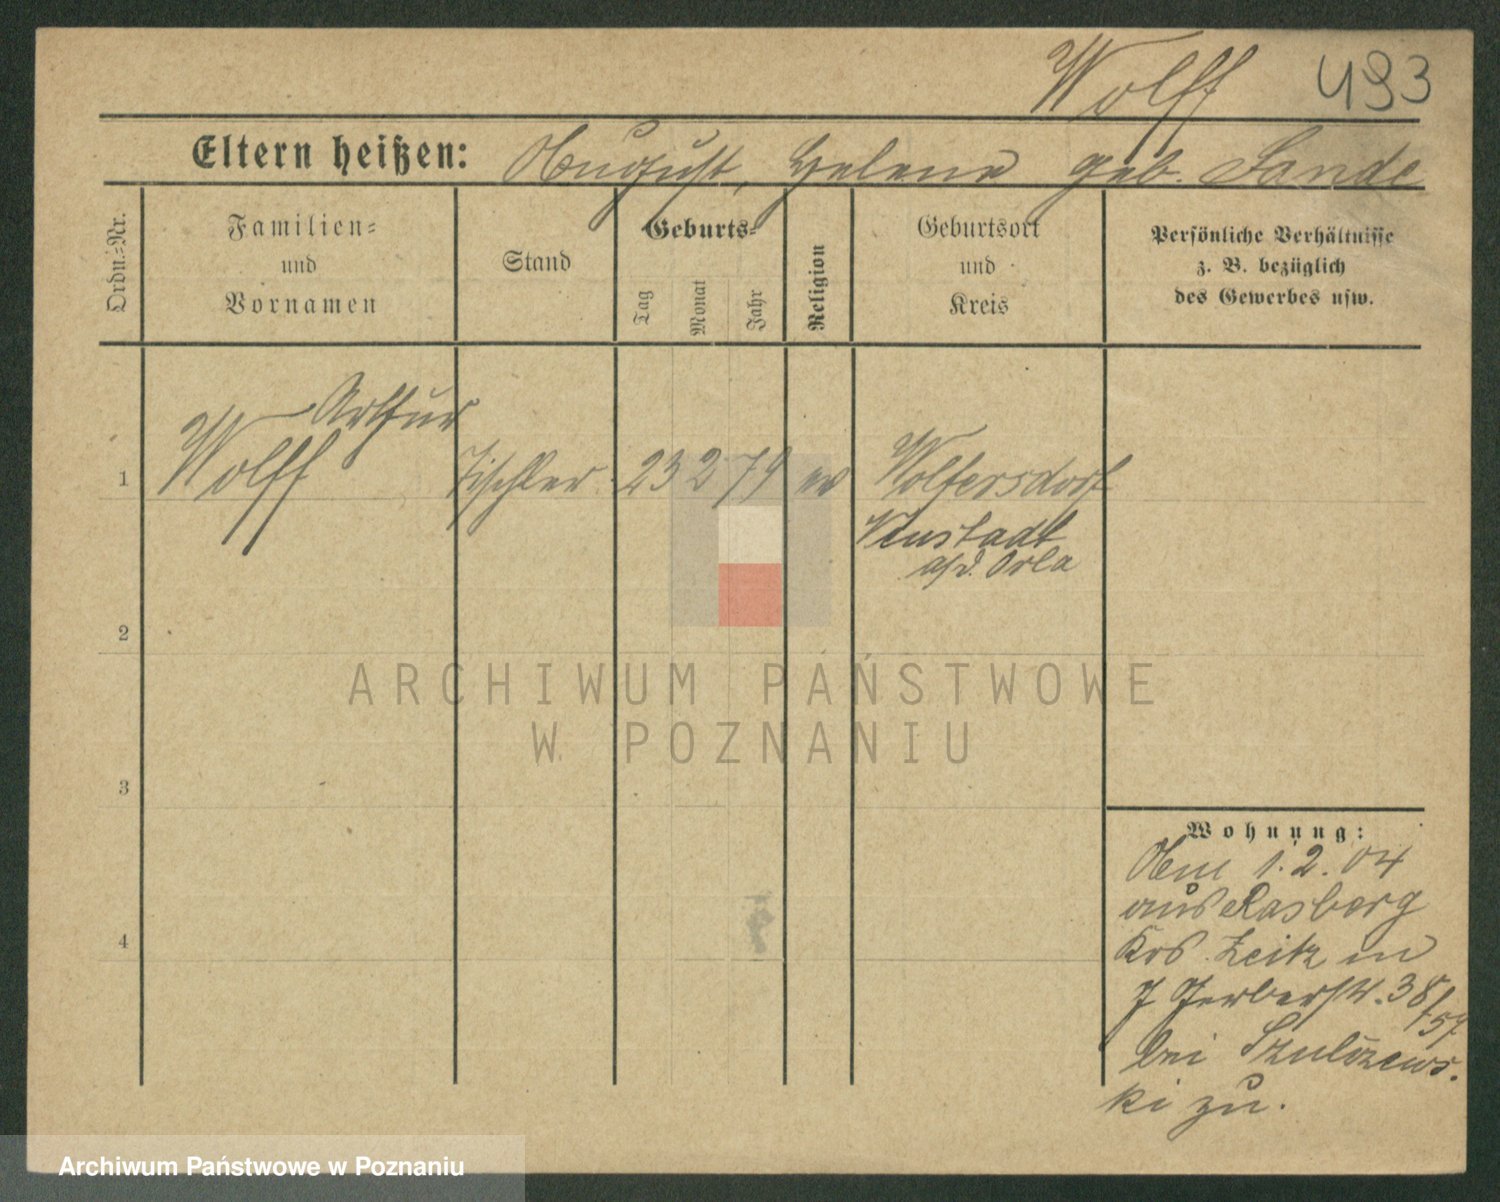 Wolff 493
Eltern heißen: August, Helene geb. Sande
Ordn.-Nr.
Familien-
und
Vornamen
Stand
Geburts-
Tag
Monat
Jahr
Religion
Geburtsort
und
Kreis
Persönliche Verhältnisse
z. B. bezüglich
des Gewerbes usw.
Arthur
1 Wolff Tischler 23 2 79 ev Wolfersdorf
Neustadt
a/d. Orla
2
3
4
Wohnung:
Am 1.2.04
aus Rasberg
Krs. Zeitz in
J Gerberstr. 38/57
bei Szulczews.
ki zu.
ARCHIWUM PAŃSTWOWE
W POZNANIU
Archiwum Państwowe w Poznaniu